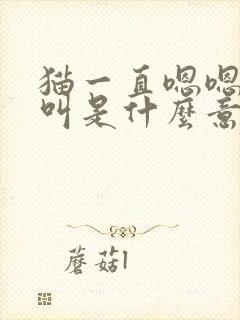 猫一直嗯嗯
叫是什麼意
蘑菇l